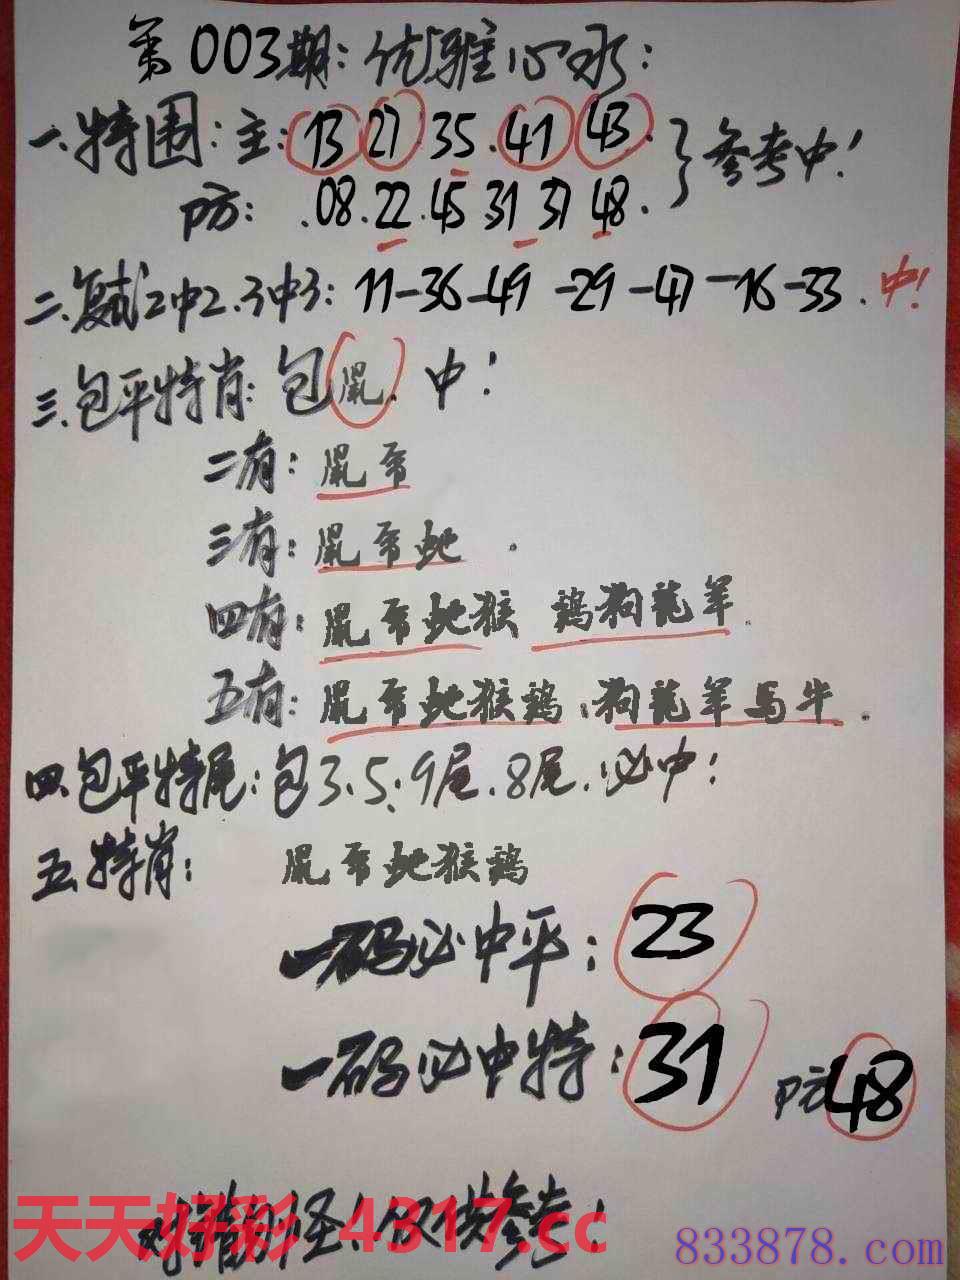 第003期：优雅心水：
一.特围：主：13 27 35.41 43.
参考中！
防：.08.22.45 31 37 48.
二.复试2中2.3中3：11-36-49-29-47-16-33.中！
三.包平特肖：包鼠.中！
二有：鼠兔
三有：鼠兔蛇.
四有：鼠兔蛇猴 鸡狗龍羊.
五有：鼠兔蛇猴鸡.狗龍羊马牛.
四.包平特尾：包3.5.9尾.8尾.必中！
五.特肖：鼠兔蛇猴鸡
一码必中平：23
一码必中特：31 防48
天天好彩 4317.cc
仅供参考！
833878.com